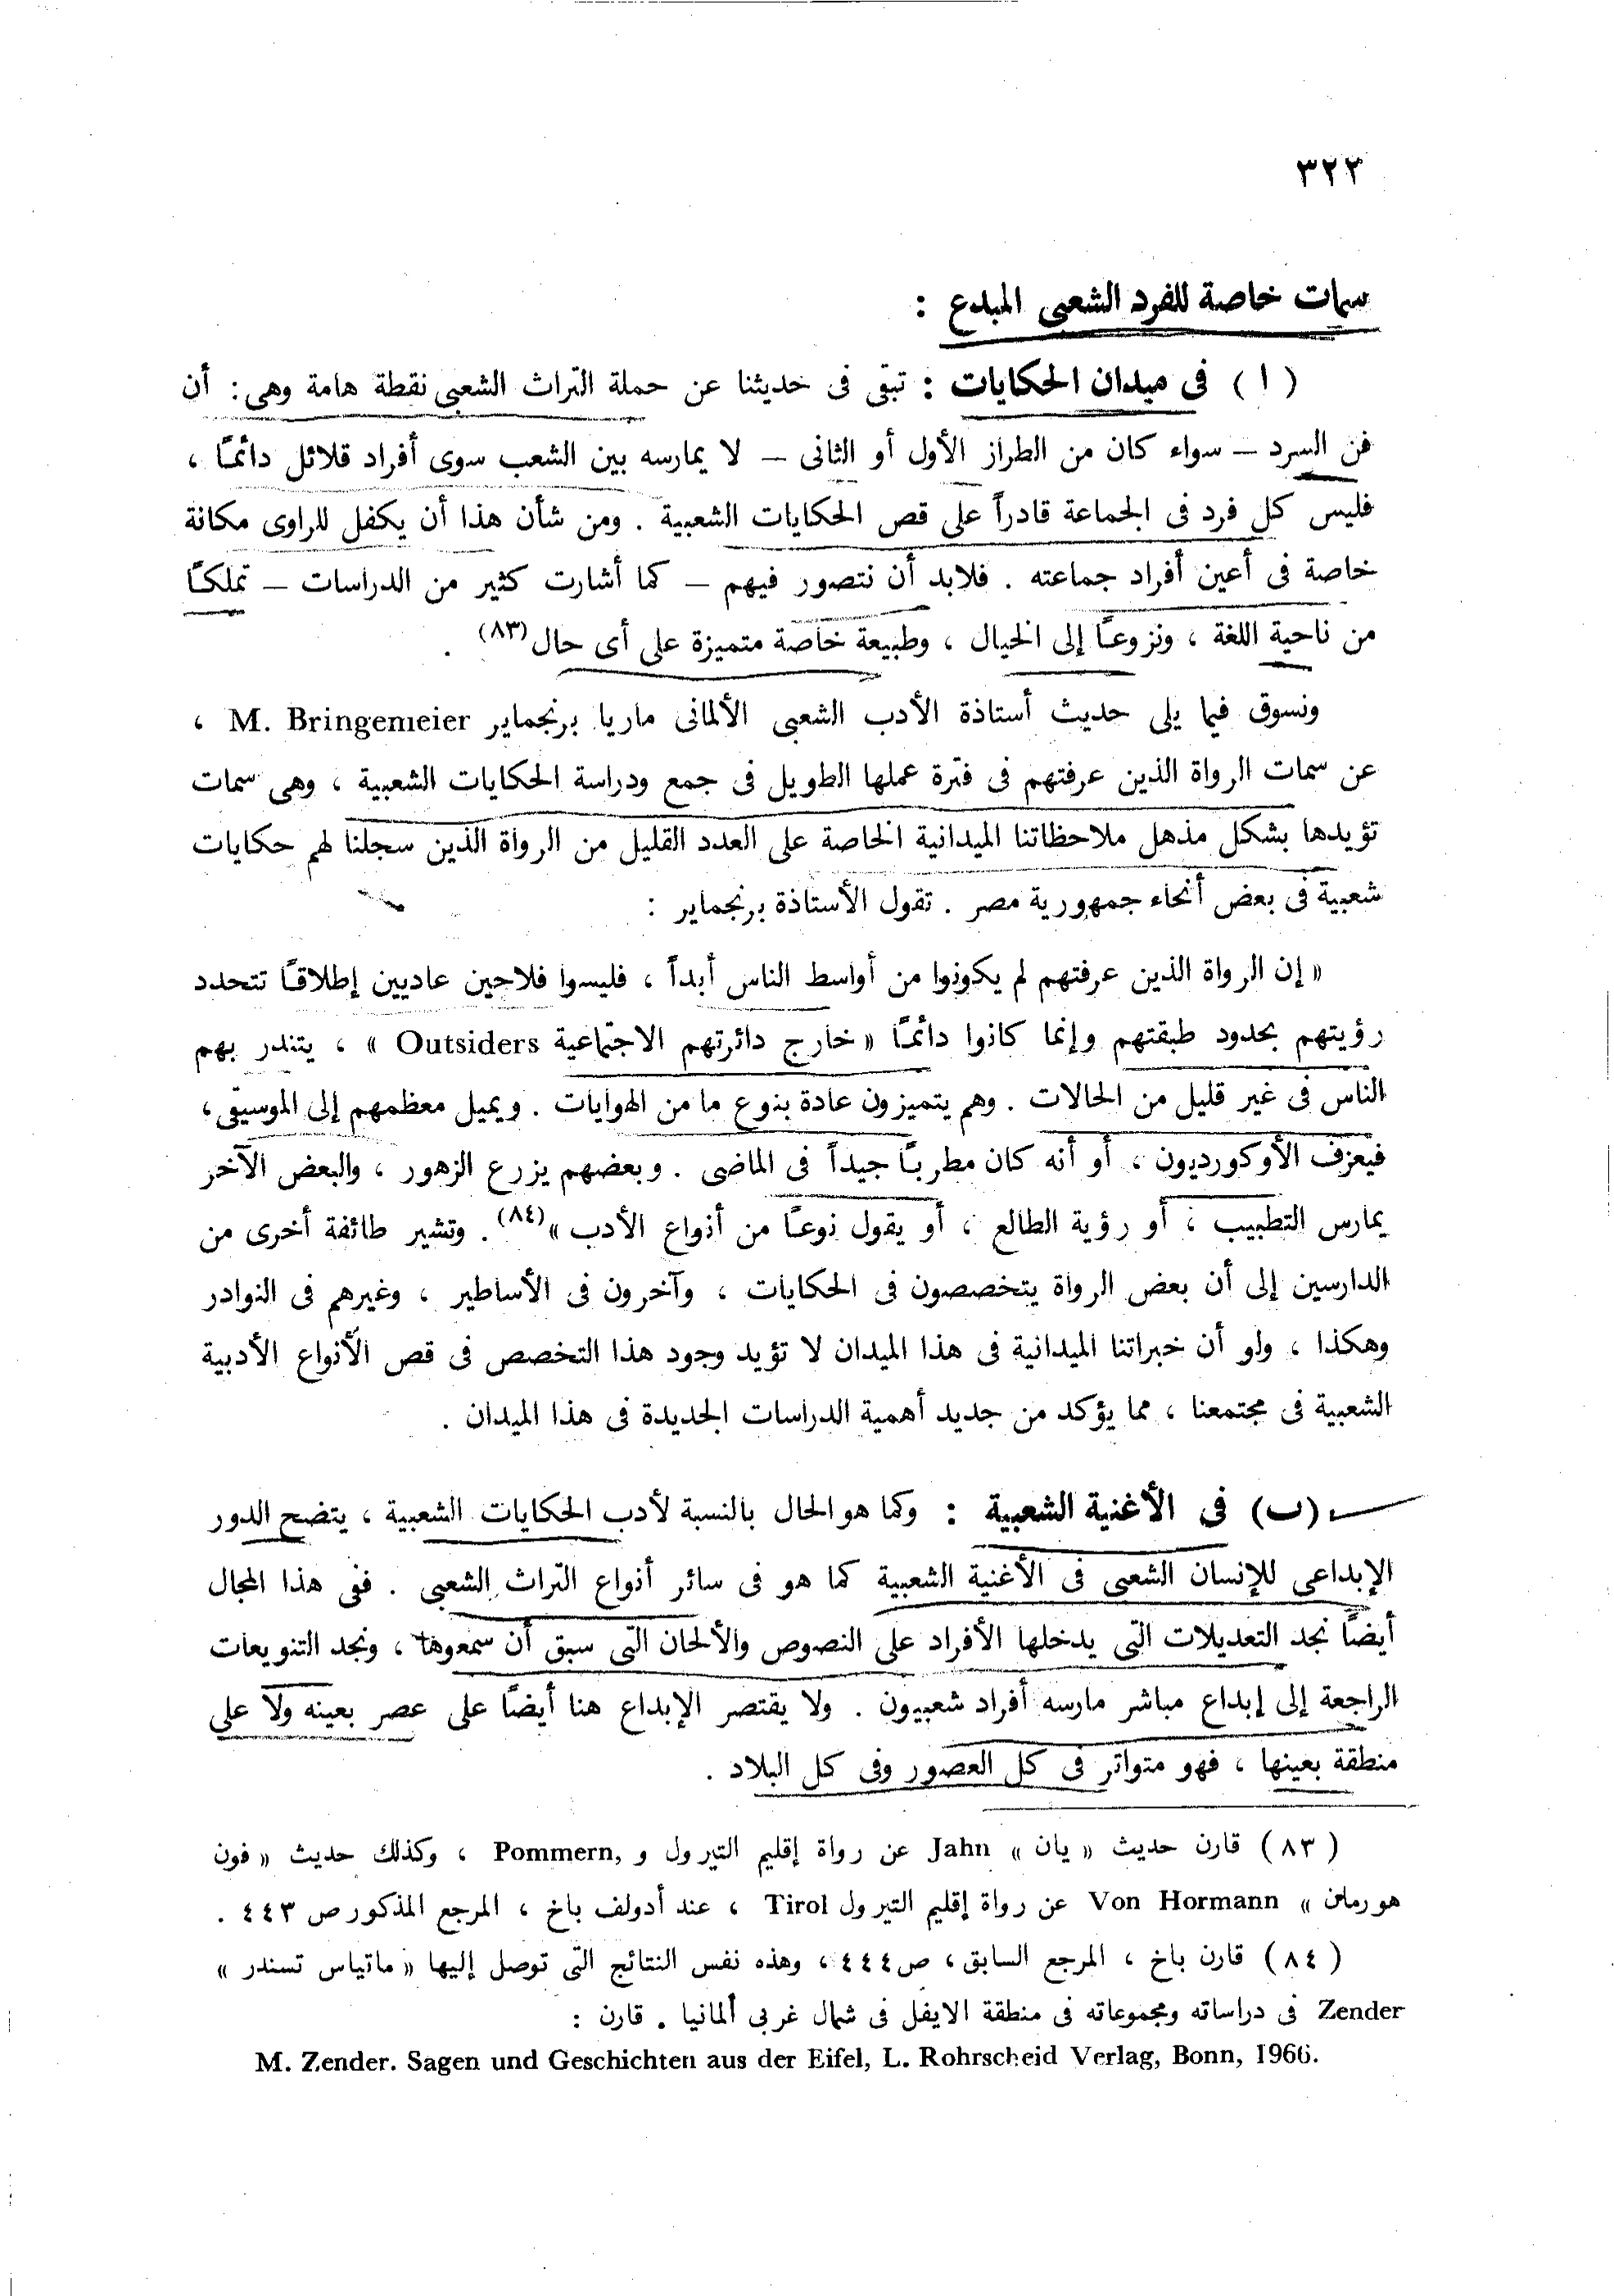 ٣٢٢
سمات خاصة للفرد الشعبى المبدع :
( ا ) فى ميدان الحكايات : تبقى فى حديثنا عن حملة التراث الشعبى نقطة هامة وهى: أن
فن السرد – سواء كان من الطراز الأول أو الثانى – لا يمارسه بين الشعب سوى أفراد قلائل دائمًا ،
فليس كل فرد فى الجماعة قادراً على قص الحكايات الشعبية . ومن شأن هذا أن يكفل للراوى مكانة
خاصة فى أعين أفراد جماعته . فلابد أن نتصور فيهم – كما أشارت كثير من الدراسات – تملكًا
من ناحية اللغة ، ونزوعًا إلى الخيال ، وطبيعة خاصة متميزة على أى حال(٨٣) .
ونسوق فيما يلى حديث أستاذة الأدب الشعبى الألمانى ماريا برنجماير M. Bringemeier ،
عن سمات الرواة الذين عرفتهم فى فترة عملها الطويل فى جمع ودراسة الحكايات الشعبية ، وهى سمات
تؤيدها بشكل مذهل ملاحظاتنا الميدانية الخاصة على العدد القليل من الرواة الذين سجلنا لهم حكايات
شعبية فى بعض أنحاء جمهورية مصر . تقول الأستاذة برنجماير :
« إن الرواة الذين عرفتهم لم يكونوا من أواسط الناس أبداً ، فليسوا فلاحين عاديين إطلاقًا تتحدد
رؤيتهم بحدود طبقتهم وإنما كانوا دائمًا « خارج دائرتهم الاجتماعية Outsiders » ، يتندر بهم
الناس فى غير قليل من الحالات . وهم يتميزون عادة بنوع ما من الهوايات . ويميل معظمهم إلى الموسيقى،
فيعزف الأوكورديون ، أو أنه كان مطربًا جيداً فى الماضى . وبعضهم يزرع الزهور ، والبعض الآخر
يمارس التطبيب ، أو رؤية الطالع ، أو يقول نوعًا من أنواع الأدب »(٨٤) . وتشير طائفة أخرى من
الدارسين إلى أن بعض الرواة يتخصصون فى الحكايات ، وآخرون فى الأساطير ، وغيرهم فى النوادر
وهكذا ، ولو أن خبراتنا الميدانية فى هذا الميدان لا تؤيد وجود هذا التخصص فى قص الأنواع الأدبية
الشعبية فى مجتمعنا ، مما يؤكد من جديد أهمية الدراسات الجديدة فى هذا الميدان .
(ب) فى الأغنية الشعبية : وكما هو الحال بالنسبة لأدب الحكايات الشعبية ، يتضح الدور
الإبداعى للإنسان الشعبى فى الأغنية الشعبية كما هو فى سائر أنواع التراث الشعبى . ففى هذا المجال
أيضًا نجد التعديلات التى يدخلها الأفراد على النصوص والألحان التى سبق أن سمعوها ، ونجد التنويعات
الراجعة إلى إبداع مباشر مارسه أفراد شعبيون . ولا يقتصر الإبداع هنا أيضًا على عصر بعينه ولا على
منطقة بعينها ، فهو متواتر فى كل العصور وفى كل البلاد .
( ٨٣ ) قارن حديث « يان » Jahn عن رواة إقليم التيرول و Pommern, ، وكذلك حديث « فون
هورمان » Von Hormann عن رواة إقليم التيرول Tirol ، عند أدولف باخ ، المرجع المذكور ص ٤٤٣ .
( ٨٤ ) قارن باخ ، المرجع السابق، ص٤٤٤ ، وهذه نفس النتائج التى توصل إليها « ماتياس تسندر »
Zender فى دراساته ومجموعاته فى منطقة الايفل فى شمال غربى ألمانيا . قارن :
M. Zender. Sagen und Geschichten aus der Eifel, L. Rohrscheid Verlag, Bonn, 1966.